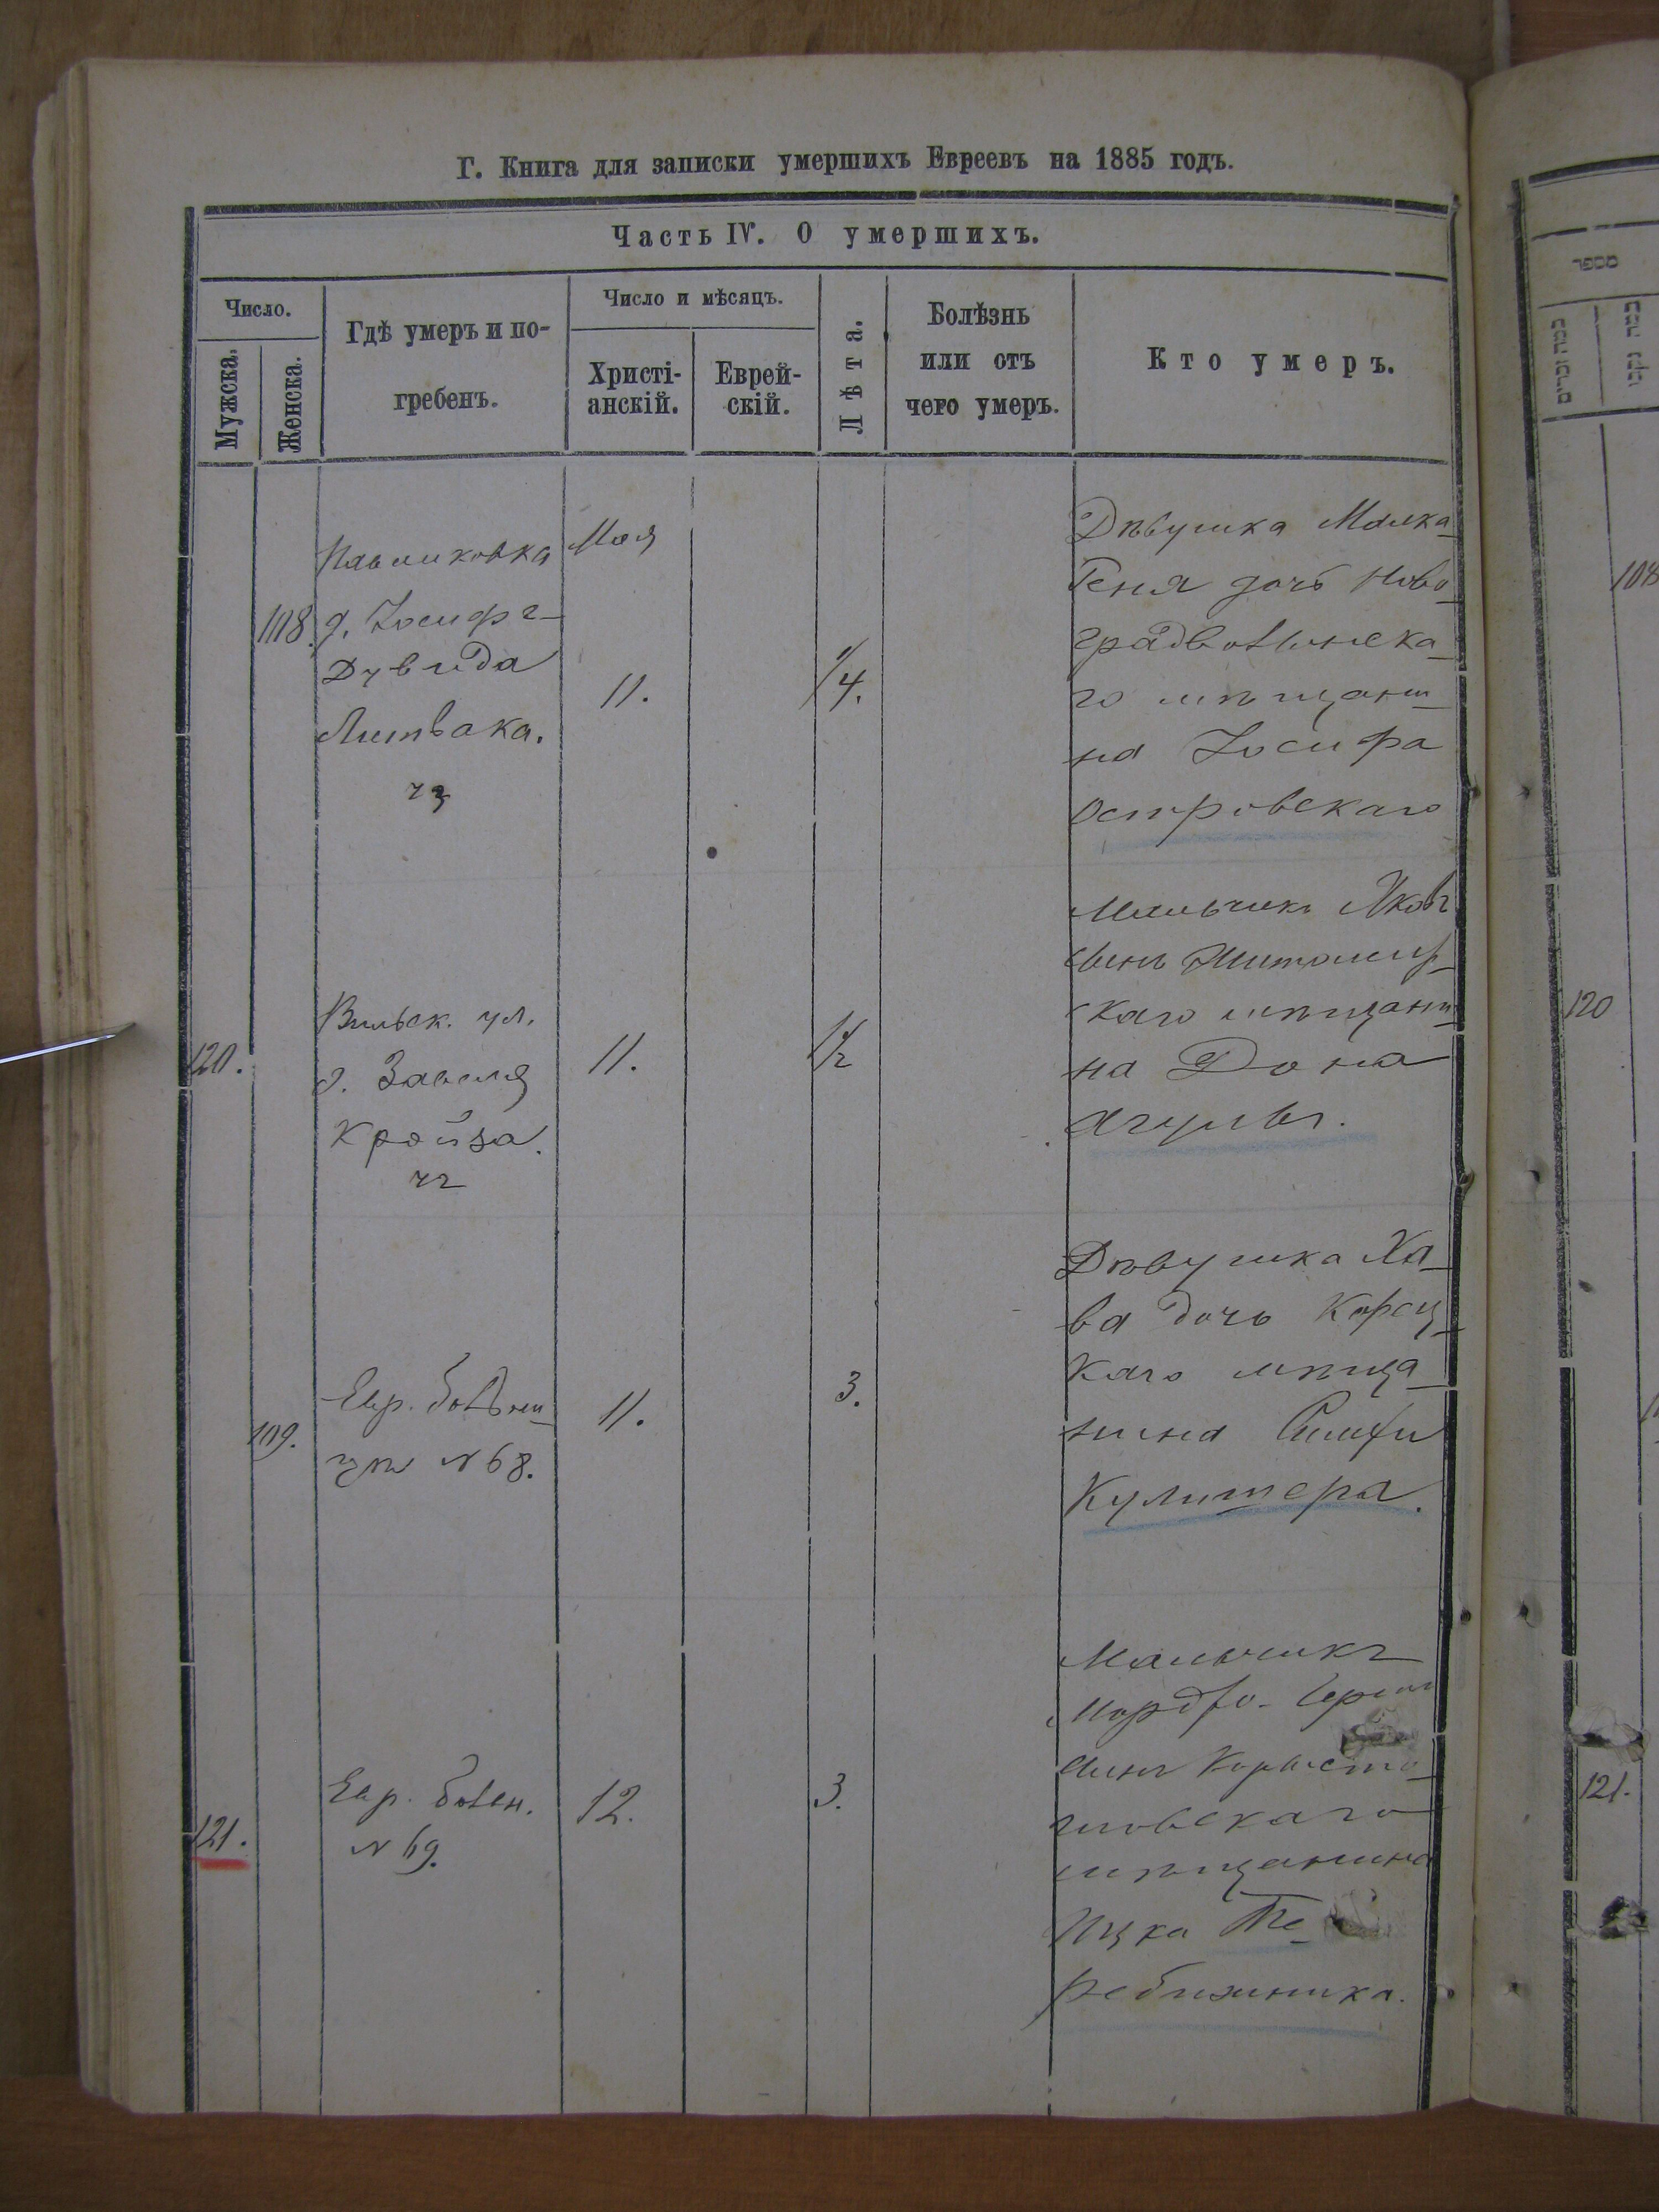 Г. Книга для записки умершихъ Евреевъ на 1885 годъ.
Часть IV. О умершихъ.
Число.
Мужска.
Женска.
Гдѣ умеръ и по-
гребенъ.
Число и мѣсяцъ.
Христі-
анскій.
Еврей-
скій.
Лѣта.
Болѣзнь
или отъ
чего умеръ.
Кто умеръ.
108.
Павликовка
д. Іосифъ-
Дувида
Литвака.
Мая
11.
1/4.
Дѣвушка Малка-
Геня дочь Ново-
градволынска-
го мѣщани-
на Іосифа
Островскаго
120.
Вильск. ул.
д. Завеля
Кройза.
11.
1/2
Мальчикъ Яковъ
сынъ Житомир-
скаго мѣщани-
на Дона
109.
Евр. больни-
цѣ N 68.
11.
3.
Дѣвушка Ха-
ва дочь Корец-
каго мѣща-
нина
Кулитера.
121.
Евр. болен.
N 69.
12.
3.
Мальчикъ
сынъ
мѣщанина
Ицка Те-
ребижника.
מספר
108
120
121.